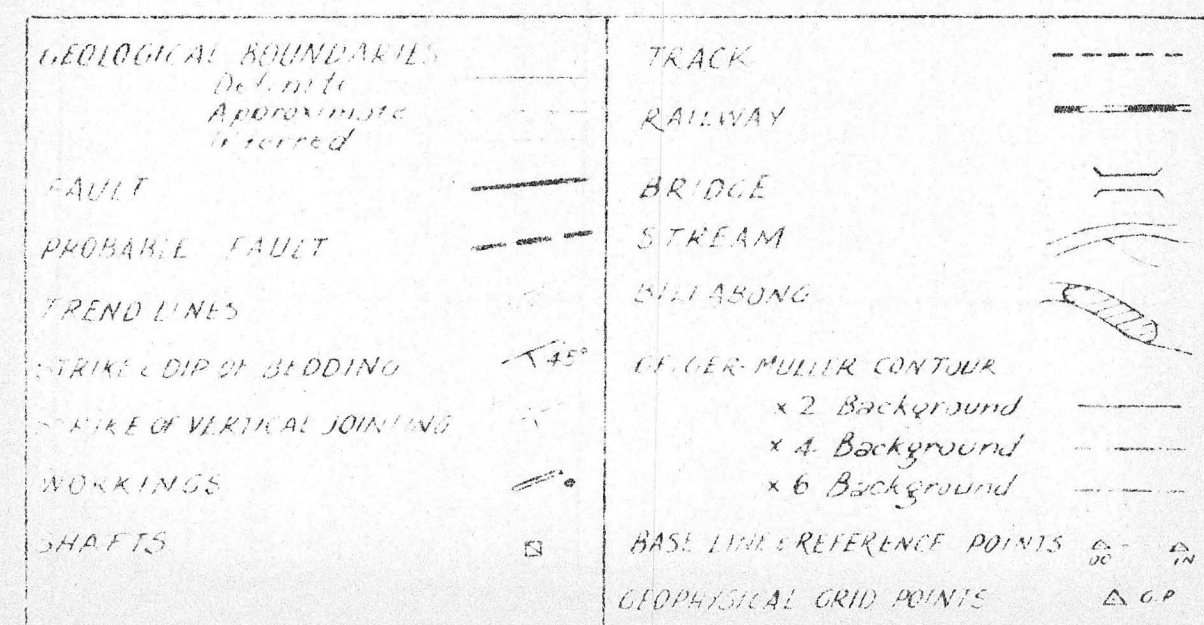 GEOLOGICAL BOUNDARIES
Definite
Approximate
Inferred
FAULT
PROBABLE FAULT
TREND LINES
STRIKE & DIP OF BEDDING 45°
STRIKE OF VERTICAL JOINTING
WORKINGS
SHAFTS
TRACK
RAILWAY
BRIDGE
STREAM
BILLABONG
GEIGER-MULLER CONTOUR
x 2 Background
x 4 Background
x 6 Background
BASE LINE & REFERENCE POINTS 00 IN
GEOPHYSICAL GRID POINTS G.P